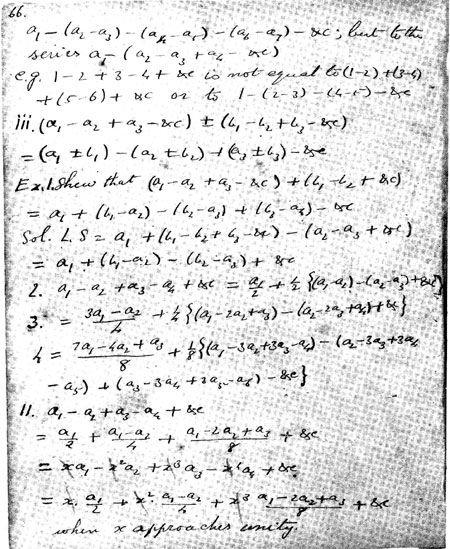 66.
a₁ – (a₂ – a₃) – (a₄ – a₅) – (a₆ – a₇) – &c ; but to the
series a₁ – (a₂ – a₃ + a₄ – &c)
e.g. 1 – 2 + 3 – 4 + &c is not equal to (1–2) + (3–4)
+ (5–6) + &c or to 1 – (2–3) – (4–5) – &c
iii. (a₁ – a₂ + a₃ – &c) ± (b₁ – b₂ + b₃ – &c)
= (a₁ ± b₁) – (a₂ ± b₂) + (a₃ ± b₃) – &c
Ex. 1. Shew that (a₁ – a₂ + a₃ – &c) + (b₁ – b₂ + &c)
= a₁ + (b₁ – a₂) – (b₂ – a₃) + (b₃ – a₄) – &c
Sol. L.S = a₁ + (b₁ – b₂ + b₃ – &c) – (a₂ – a₃ + &c)
= a₁ + (b₁ – a₂) – (b₂ – a₃) + &c
2. a₁ – a₂ + a₃ – a₄ + &c = a₁/2 + ½ {(a₁ – a₂) – (a₂ – a₃) + &c}
3. = (3a₁ – a₂)/4 + ¼ {(a₁ – 2a₂ + a₃) – (a₂ – 2a₃ + a₄) + &c}
4 = (7a₁ – 4a₂ + a₃)/8 + ⅛ {(a₁ – 3a₂ + 3a₃ – a₄) – (a₂ – 3a₃ + 3a₄
– a₅) + (a₃ – 3a₄ + 3a₅ – a₆) – &c}
11. a₁ – a₂ + a₃ – a₄ + &c
= a₁/2 + (a₁ – a₂)/4 + (a₁ – 2a₂ + a₃)/8 + &c
= xa₁ – x²a₂ + x³a₃ – x⁴a₄ + &c
= x. a₁/2 + x² (a₁ – a₂)/4 + x³ (a₁ – 2a₂ + a₃)/8 + &c
when x approaches unity.